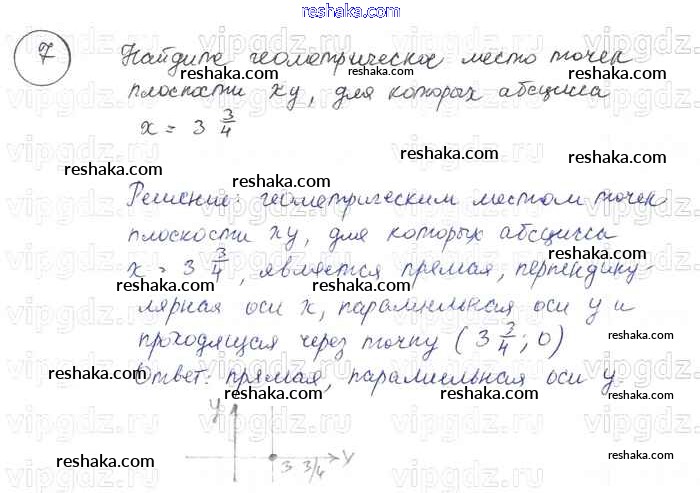 reshaka.com
7 Найдите геометрическое место точек
reshaka.com reshaka.com reshaka.com
плоскости xy, для которых абсцисса
x = 3 3/4
reshaka.com reshaka.com
reshaka.com reshaka.com
Решение: геометрическим местом точек
reshaka.com reshaka.com
плоскости xy, для которых абсцисса
reshaka.com
x = 3 3/4, является прямая, перпендику-
reshaka.com reshaka.com reshaka.com
лярная оси x, параллельная оси y и
проходящая через точку (3 3/4; 0)
reshaka.com reshaka.com
Ответ: прямая, параллельная оси y.
reshaka.com reshaka.com
y
reshaka.com reshaka.com
3 3/4 y
reshaka.com reshaka.com reshaka.com